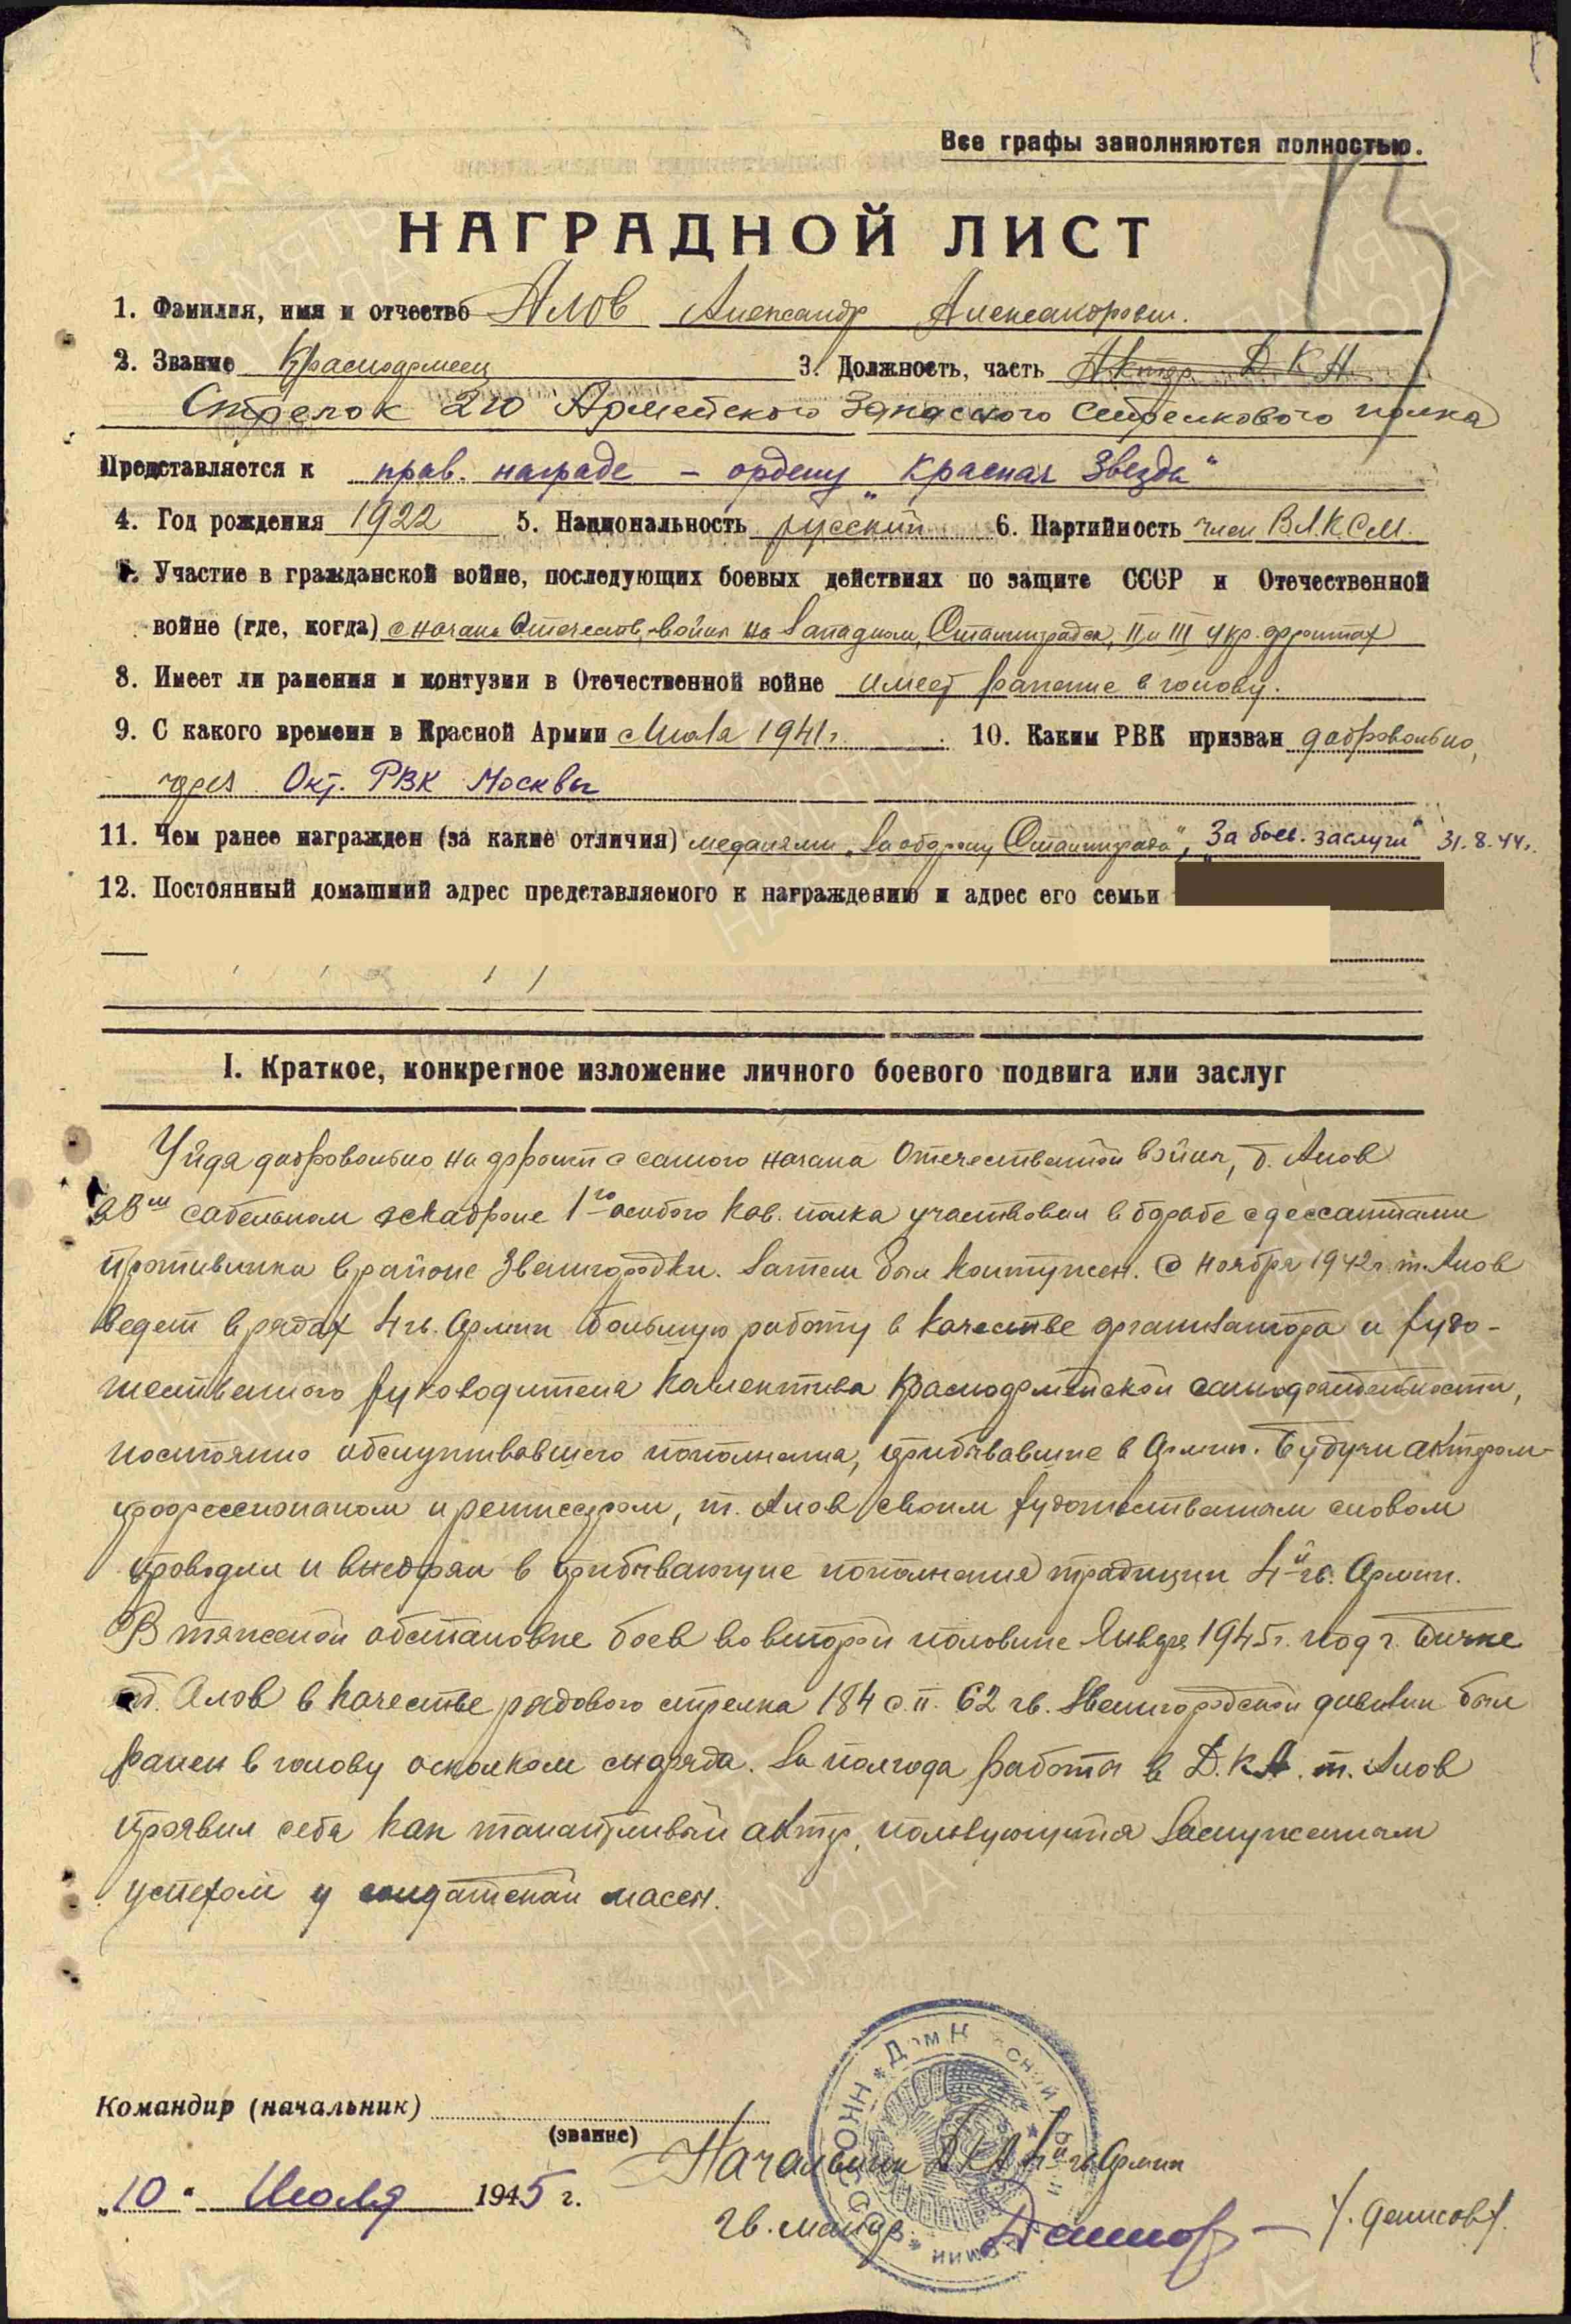 Все графы заполняются полностью.
НАГРАДНОЙ ЛИСТ
1. Фамилия, имя и отчество Алов Александр Александрович.
2. Звание Красноармеец 3. Должность, часть Актер Д К А
Стрелок 210 Армейского Запасного Стрелкового полка
Представляется к прав. награде – ордену „Красная Звезда“
4. Год рождения 1922 5. Национальность русский 6. Партийность член ВЛКСМ.
7. Участие в гражданской войне, последующих боевых действиях по защите СССР и Отечественной
войне (где, когда) с начала Отечеств. войны на Западном, Сталинградск, II и III Укр. фронтах
8. Имеет ли ранения и контузии в Отечественной войне имеет ранение в голову.
9. С какого времени в Красной Армии с Июля 1941г. 10. Каким РВК призван добровольно,
через Окт. РВК Москвы
11. Чем ранее награжден (за какие отличия) медалями „За оборону Сталинграда“, „За боев. заслуги“ 31.8.44г.
12. Постоянный домашний адрес представляемого к награждению и адрес его семьи
I. Краткое, конкретное изложение личного боевого подвига или заслуг
Уйдя добровольно на фронт с самого начала Отечественной войны, т. Алов
в 8м сабельном эскадроне 1го особого Кав. полка участвовал в борьбе с дессантами
противника в районе Звенигородки. Затем был контужен. С ноября 1942г. т. Алов
ведет в рядах 4 гв. Армии большую работу в качестве организатора и худо-
жественного руководителя коллектива Красноармейской самодеятельности,
постоянно обслуживавшего пополнения, прибывавшие в Армии. Будучи актером-
профессионалом и режиссером, т. Алов своим художественным словом
проводил и внедрял в прибывающие пополнения традиции 4й гв. Армии.
В тяжелой обстановке боев во второй половине Января 1945г. под г. Бичке
т. Алов в качестве рядового стрелка 184 с.п. 62 гв. Звенигородской дивизии был
ранен в голову осколком снаряда. За полгода работы в Д.К.А. т. Алов
проявил себя как талантливый актер, пользующийся заслуженным
успехом у солдатской массы.
Командир (начальник)
(звание)
Начальник ДКА 4й гв. Армии
„10“ Июля 1945 г.
гв. майор /. Денисов /.
ПАМЯТЬ НАРОДА